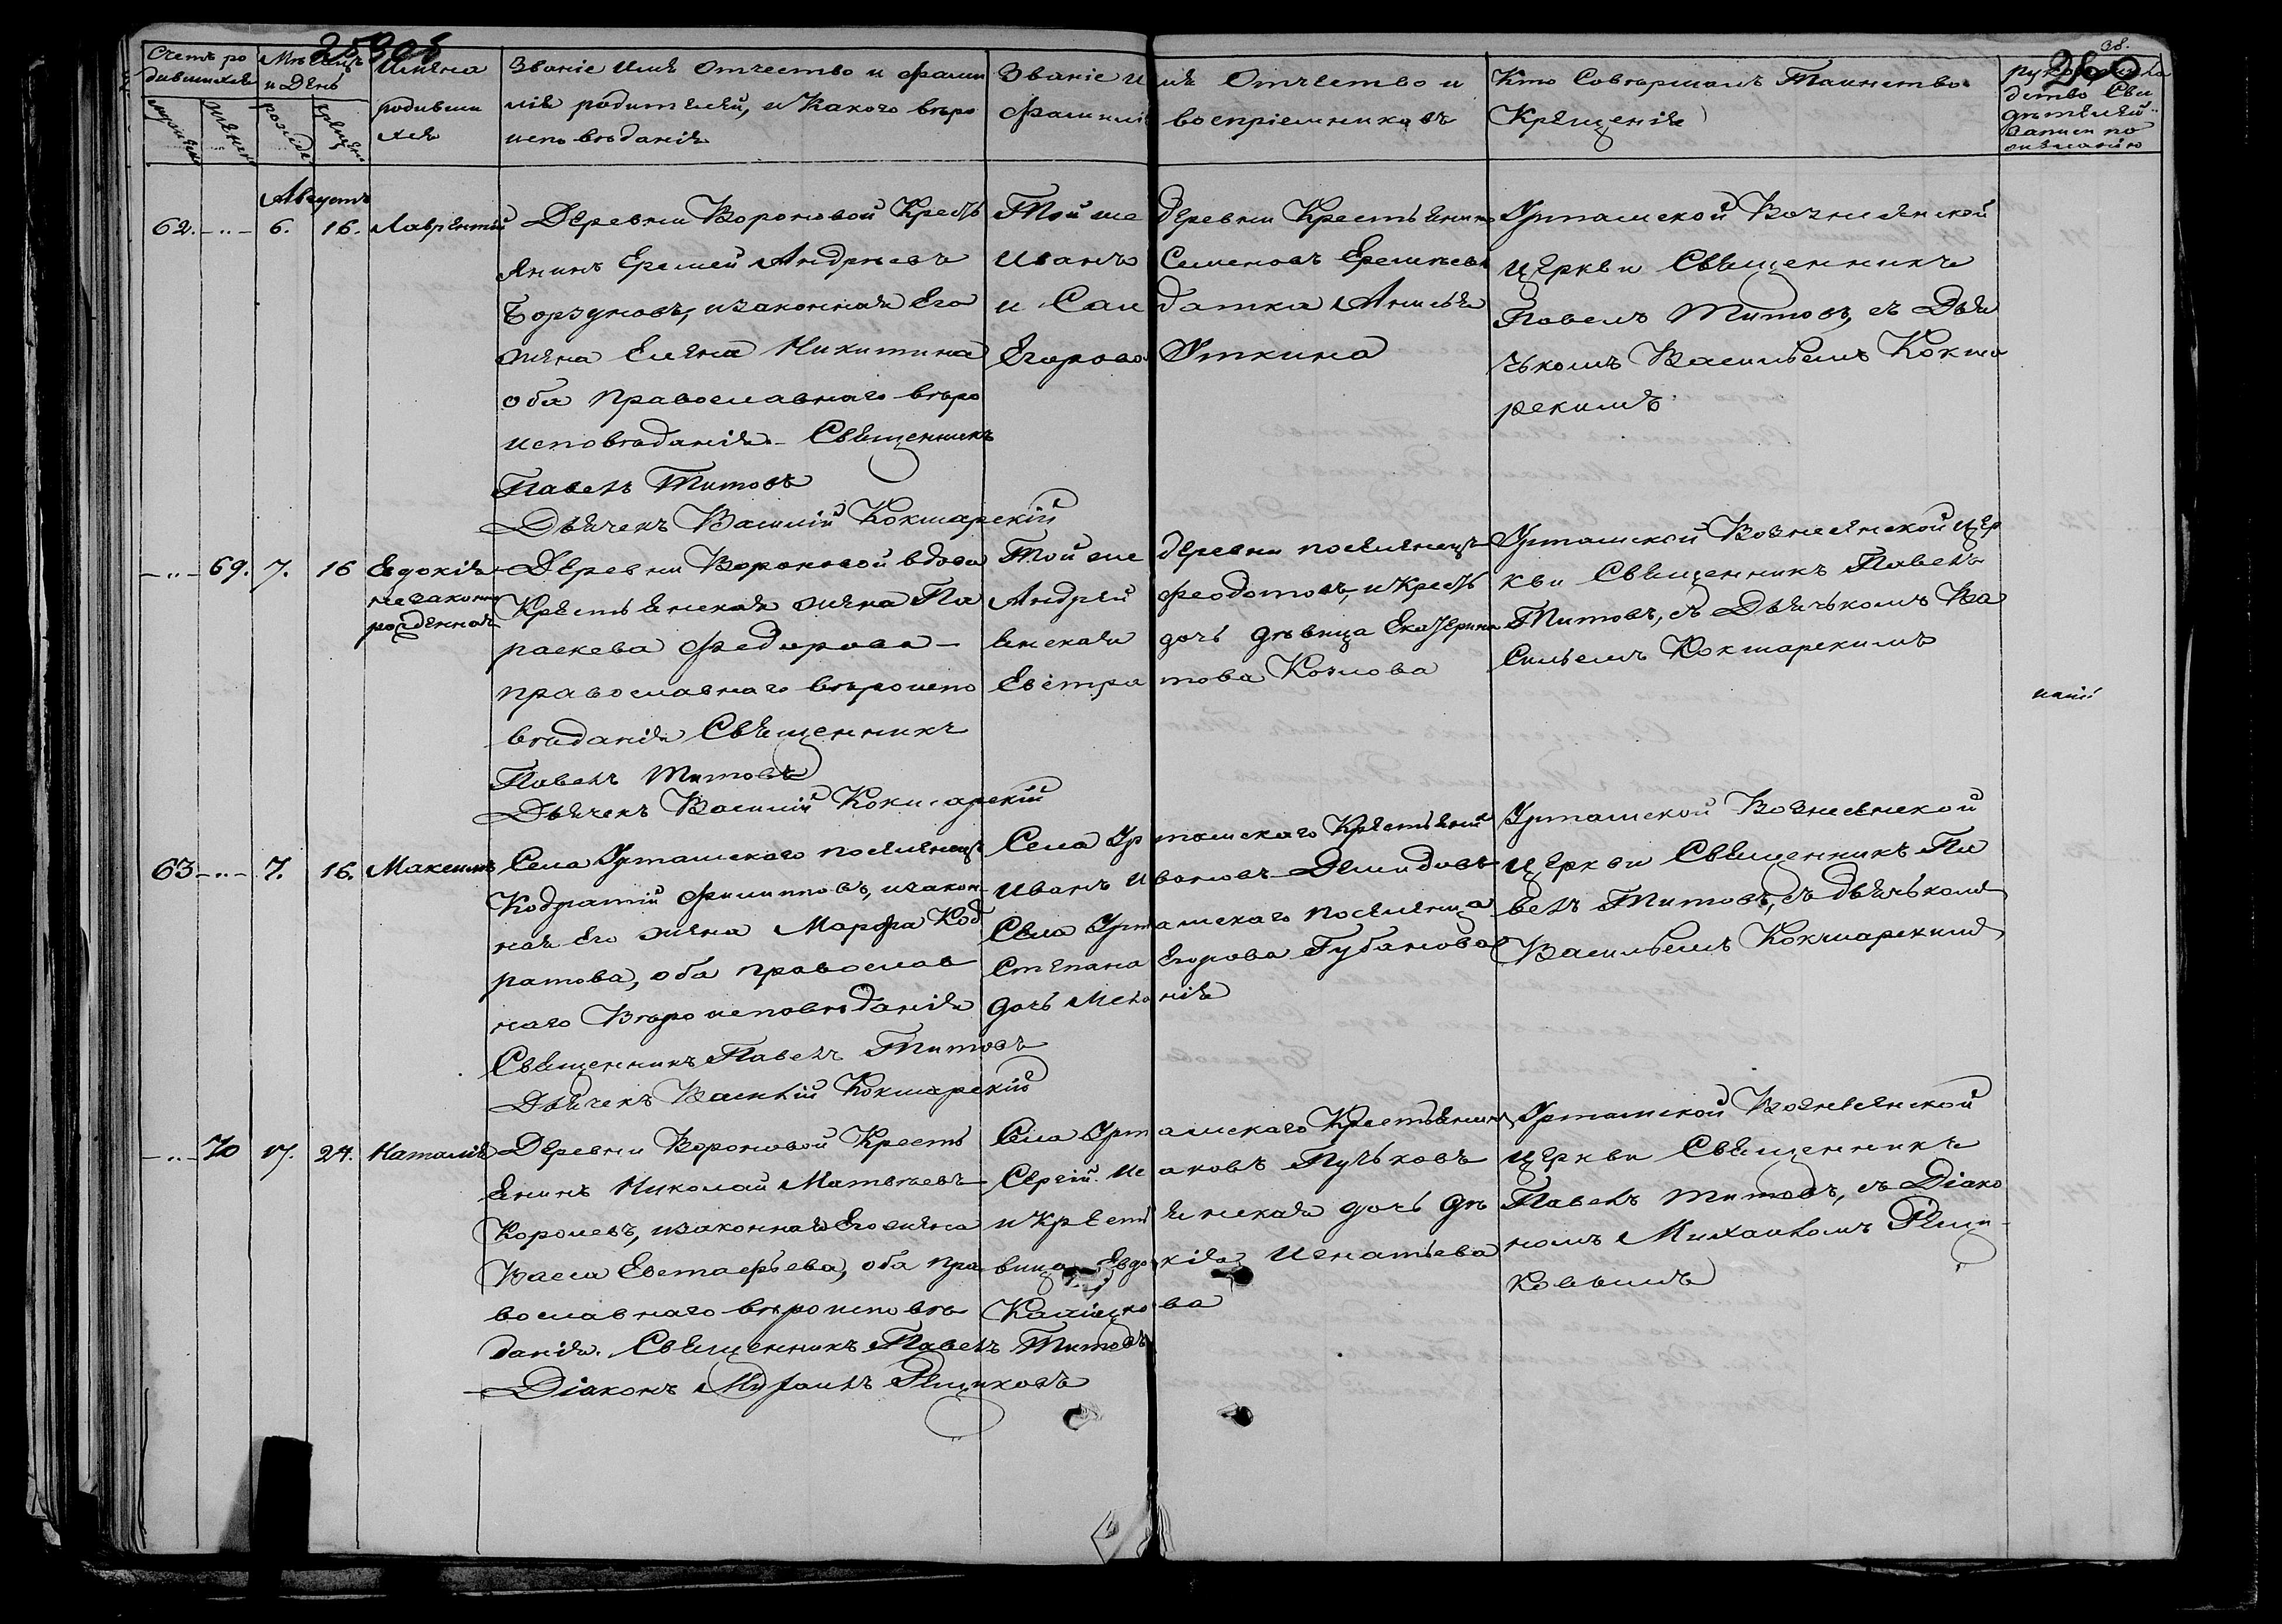 25908
38.
260
Счетъ ро
дившихся
Мѣсяцъ
и День
Имена
родивши
хся
Званіе Имя Отчество и фами
лія родителей, и Какого вѣро
исповѣданія
Званіе Имя Отчество и
фамилія воспріемниковъ
Кто Совершалъ Таинство
Крещенія
рукоприкла
дство Сви
дѣтелей
записи по
желанію
Августъ
62. -"- 6. 16. Лаврентій
Деревни Вороновой Кресть
янинъ Еремей Андреевъ
Борзуновъ, изаконная Его
жена Елена Никитина
оба православнаго вѣро
исповѣданія. Священникъ
Павелъ Титовъ
Дьячекъ Василій Кокшарскій
Той же деревни Крестьянинъ
Иванъ Семеновъ Еремѣевъ
и Солдатка Анисья
Егорова Уткина
Уртамской Вознесенской
церкви Священникъ
Павелъ Титовъ, съ Дья
чькомъ Васильемъ Кокша
рскимъ
-"- 69. 7. 16 Евдокія
незаконно
рожденная
Деревни Вороновой вдова
Крестьянская жена Па
раскева Федорова
православнаго вѣроиспо
вѣданія Священникъ
Павелъ Титовъ
Дьячекъ Василій Кокшарскій
Той же деревни поселенецъ
Андрей Феодотовъ, и Кресть
янская дочь дѣвица Екатерина
Евстратова Козлова
Уртамской Вознесенской цер
кви Священникъ Павелъ
Титовъ, съ Дьячькомъ Ва
сильемъ Кокшарскимъ
63 -"- 7. 16. Максимъ
Села Уртамскаго поселенецъ
Кодратій Филиповъ, изакон
ная Его жена Марфа Код
ратова, оба православ
наго Вѣроисповѣданія
Священникъ Павелъ Титовъ
Дьячекъ Василій Кокшарскій
Села Уртамскаго Крестьянинъ
Иванъ Ивановъ Демидовъ
Села Уртамскаго поселенца
Степана Егорова Губанова
дочь Меланія
Уртамской Вознесенской
церкви Священникъ Па
велъ Титовъ, съ дьячькомъ
Васильемъ Кокшарскимъ
-"- 70 17. 24. Наталія
Деревни Вороновой Кресть
янинъ Николай Матвѣевъ
Королевъ, изаконная Его жена
Васса Евстафьева, оба пра
вославнаго вѣроисповѣ
данія. Священникъ Павелъ Титовъ
Діаконъ Михаилъ Рещиковъ
Села Уртамскаго Крестьянинъ
Сергій Исаковъ Пучьковъ
и Крестьянская дочь дѣ
вица Евдокія Игнатьева
Уртамской Вознесенской
церкви Священникъ
Павелъ Титовъ, съ Діако
номъ Михаиломъ Рещи
ковымъ